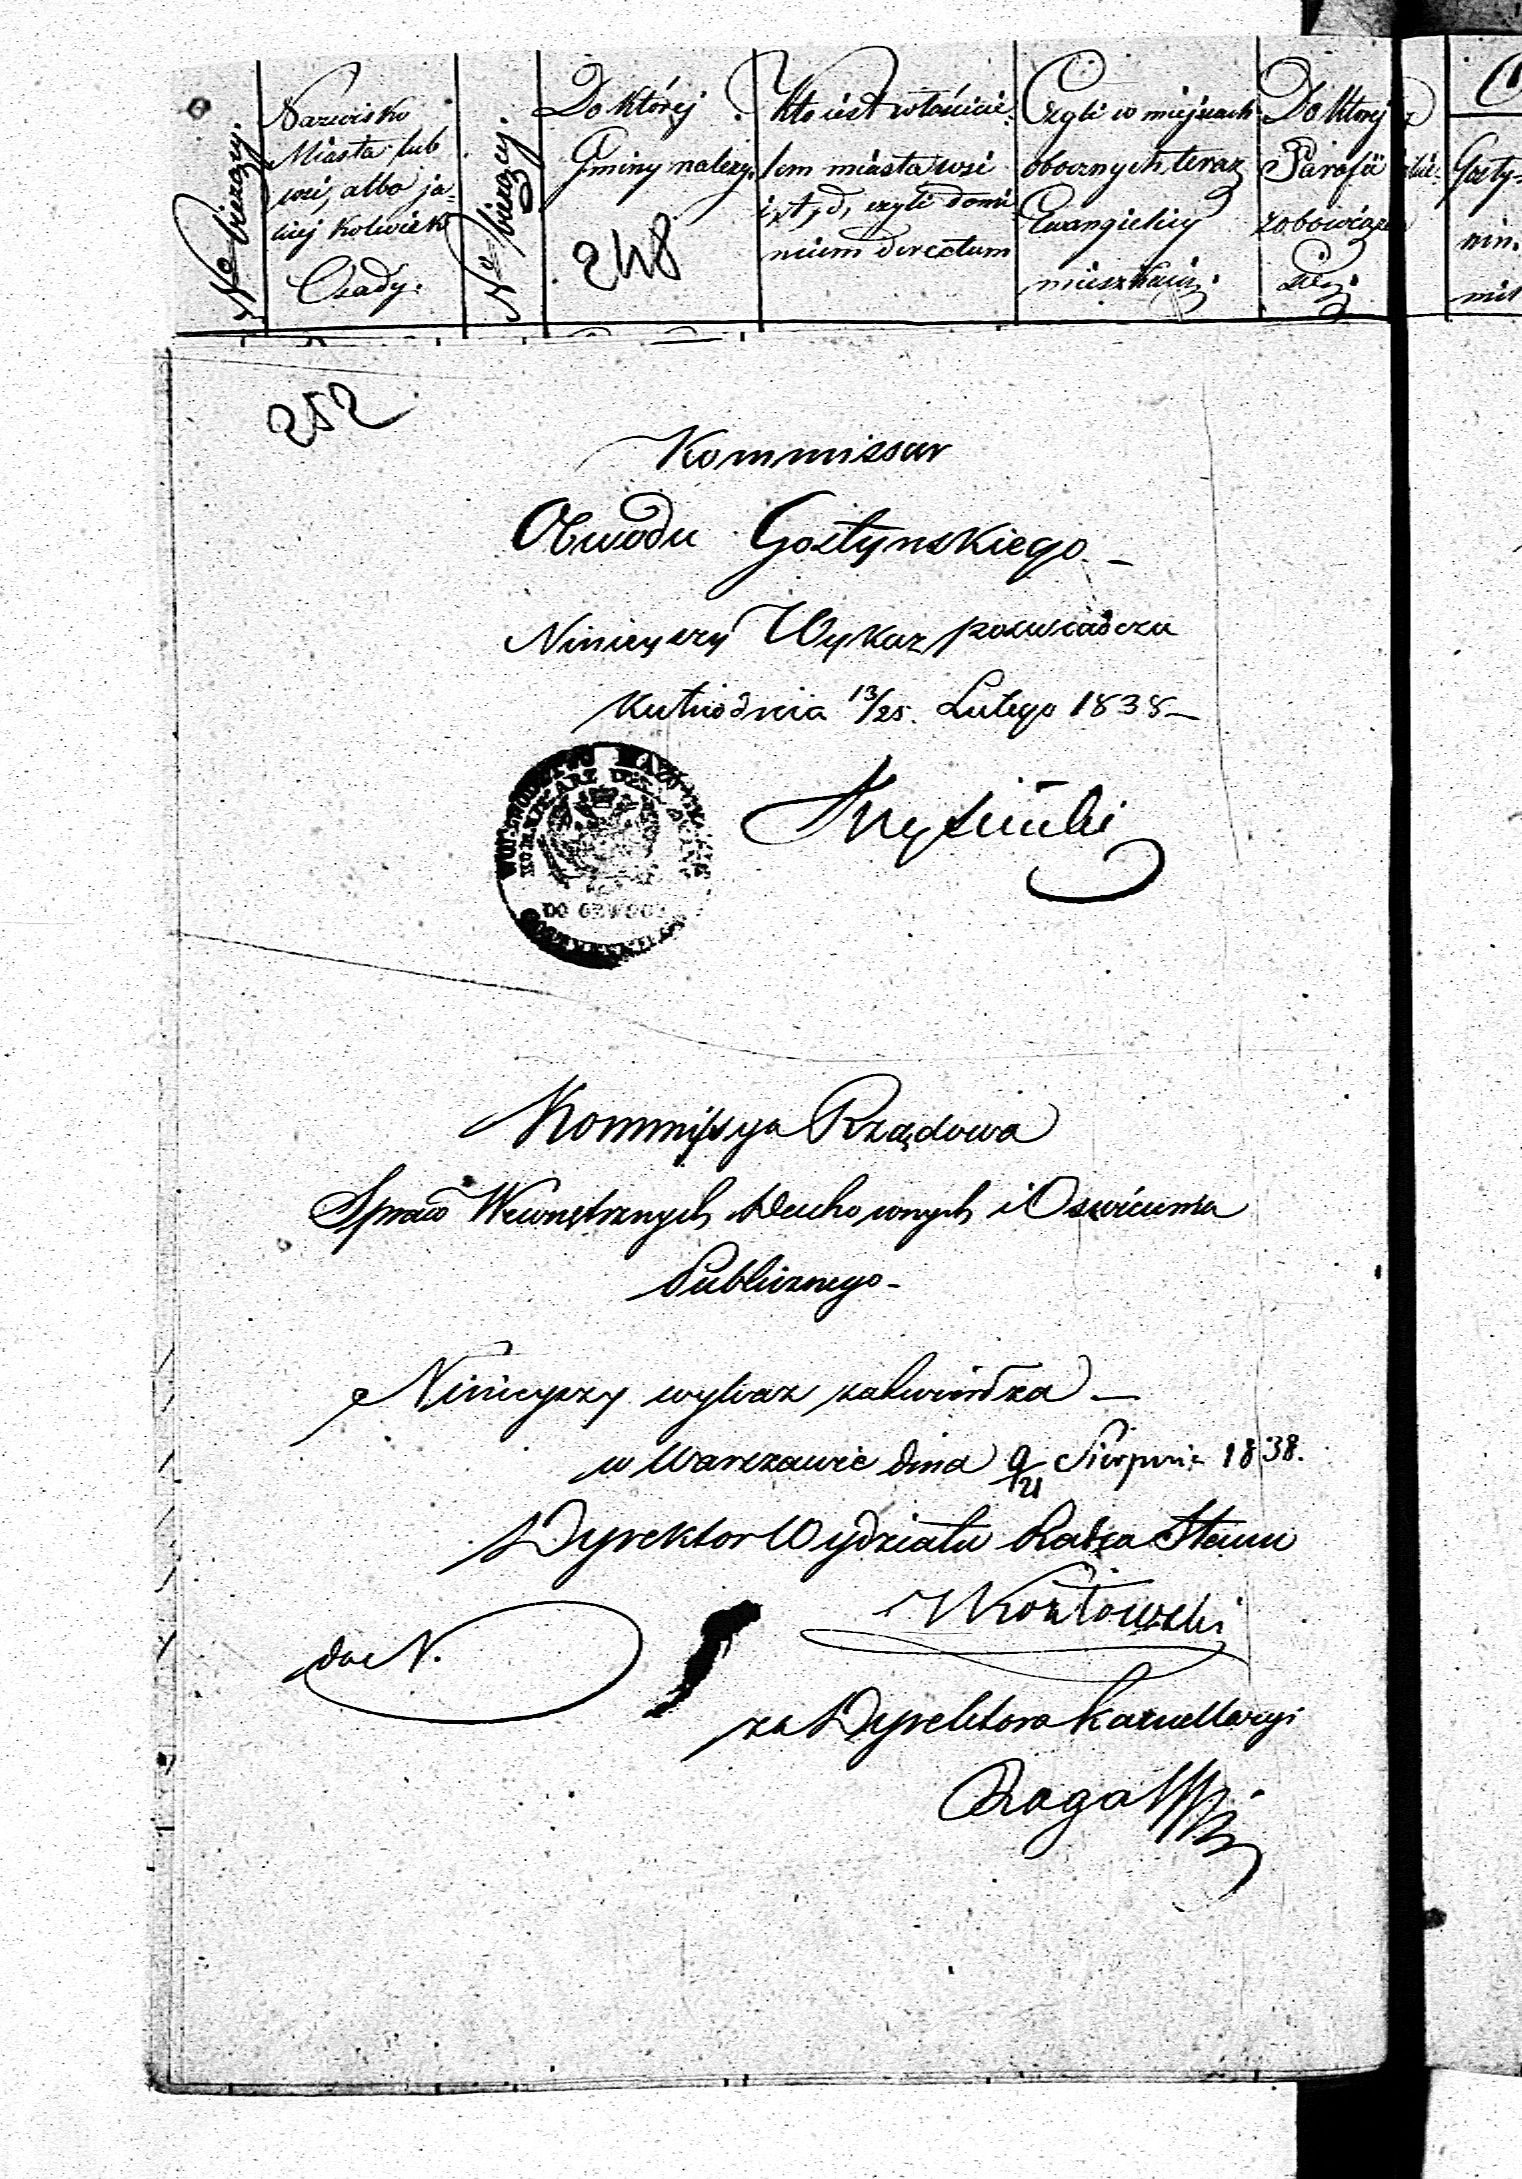 No bieżący.
Nazwisko
Miasta lub
wsi, albo ja-
kiej kolwiek
Osady.
No bieżący.
Do której
Gminy należy.
248
Kto iest właścicie-
lem miasta wsi
i t, d, czyli domi
nium directum
Czyli w miejscach
obocznych teraz
Ewangielicy
mieszkają.
Do której
Parafii
zobowiąza
są.
Gosty-
nin.
252
Kommissar
Obwodu Gostynskiego. –
Ninieyszy Wykaz poswiadcza
Kutno dnia 13/25. Lutego 1838 –
WOJEWÓDZTWO MAZO
DO OBWODU
Kommissya Rządowa
Spraw Wewnętrznych Duchownych i Oswiecenia
Publicznego –
Ninieyszy wykaz zatwierdza –
w Warszawie dnia 9/21 Sierpnia 1838.
Dyrektor Wydziału Radca Stanu
Kozłowski
do N.
za Dyrektora Kancellaryi